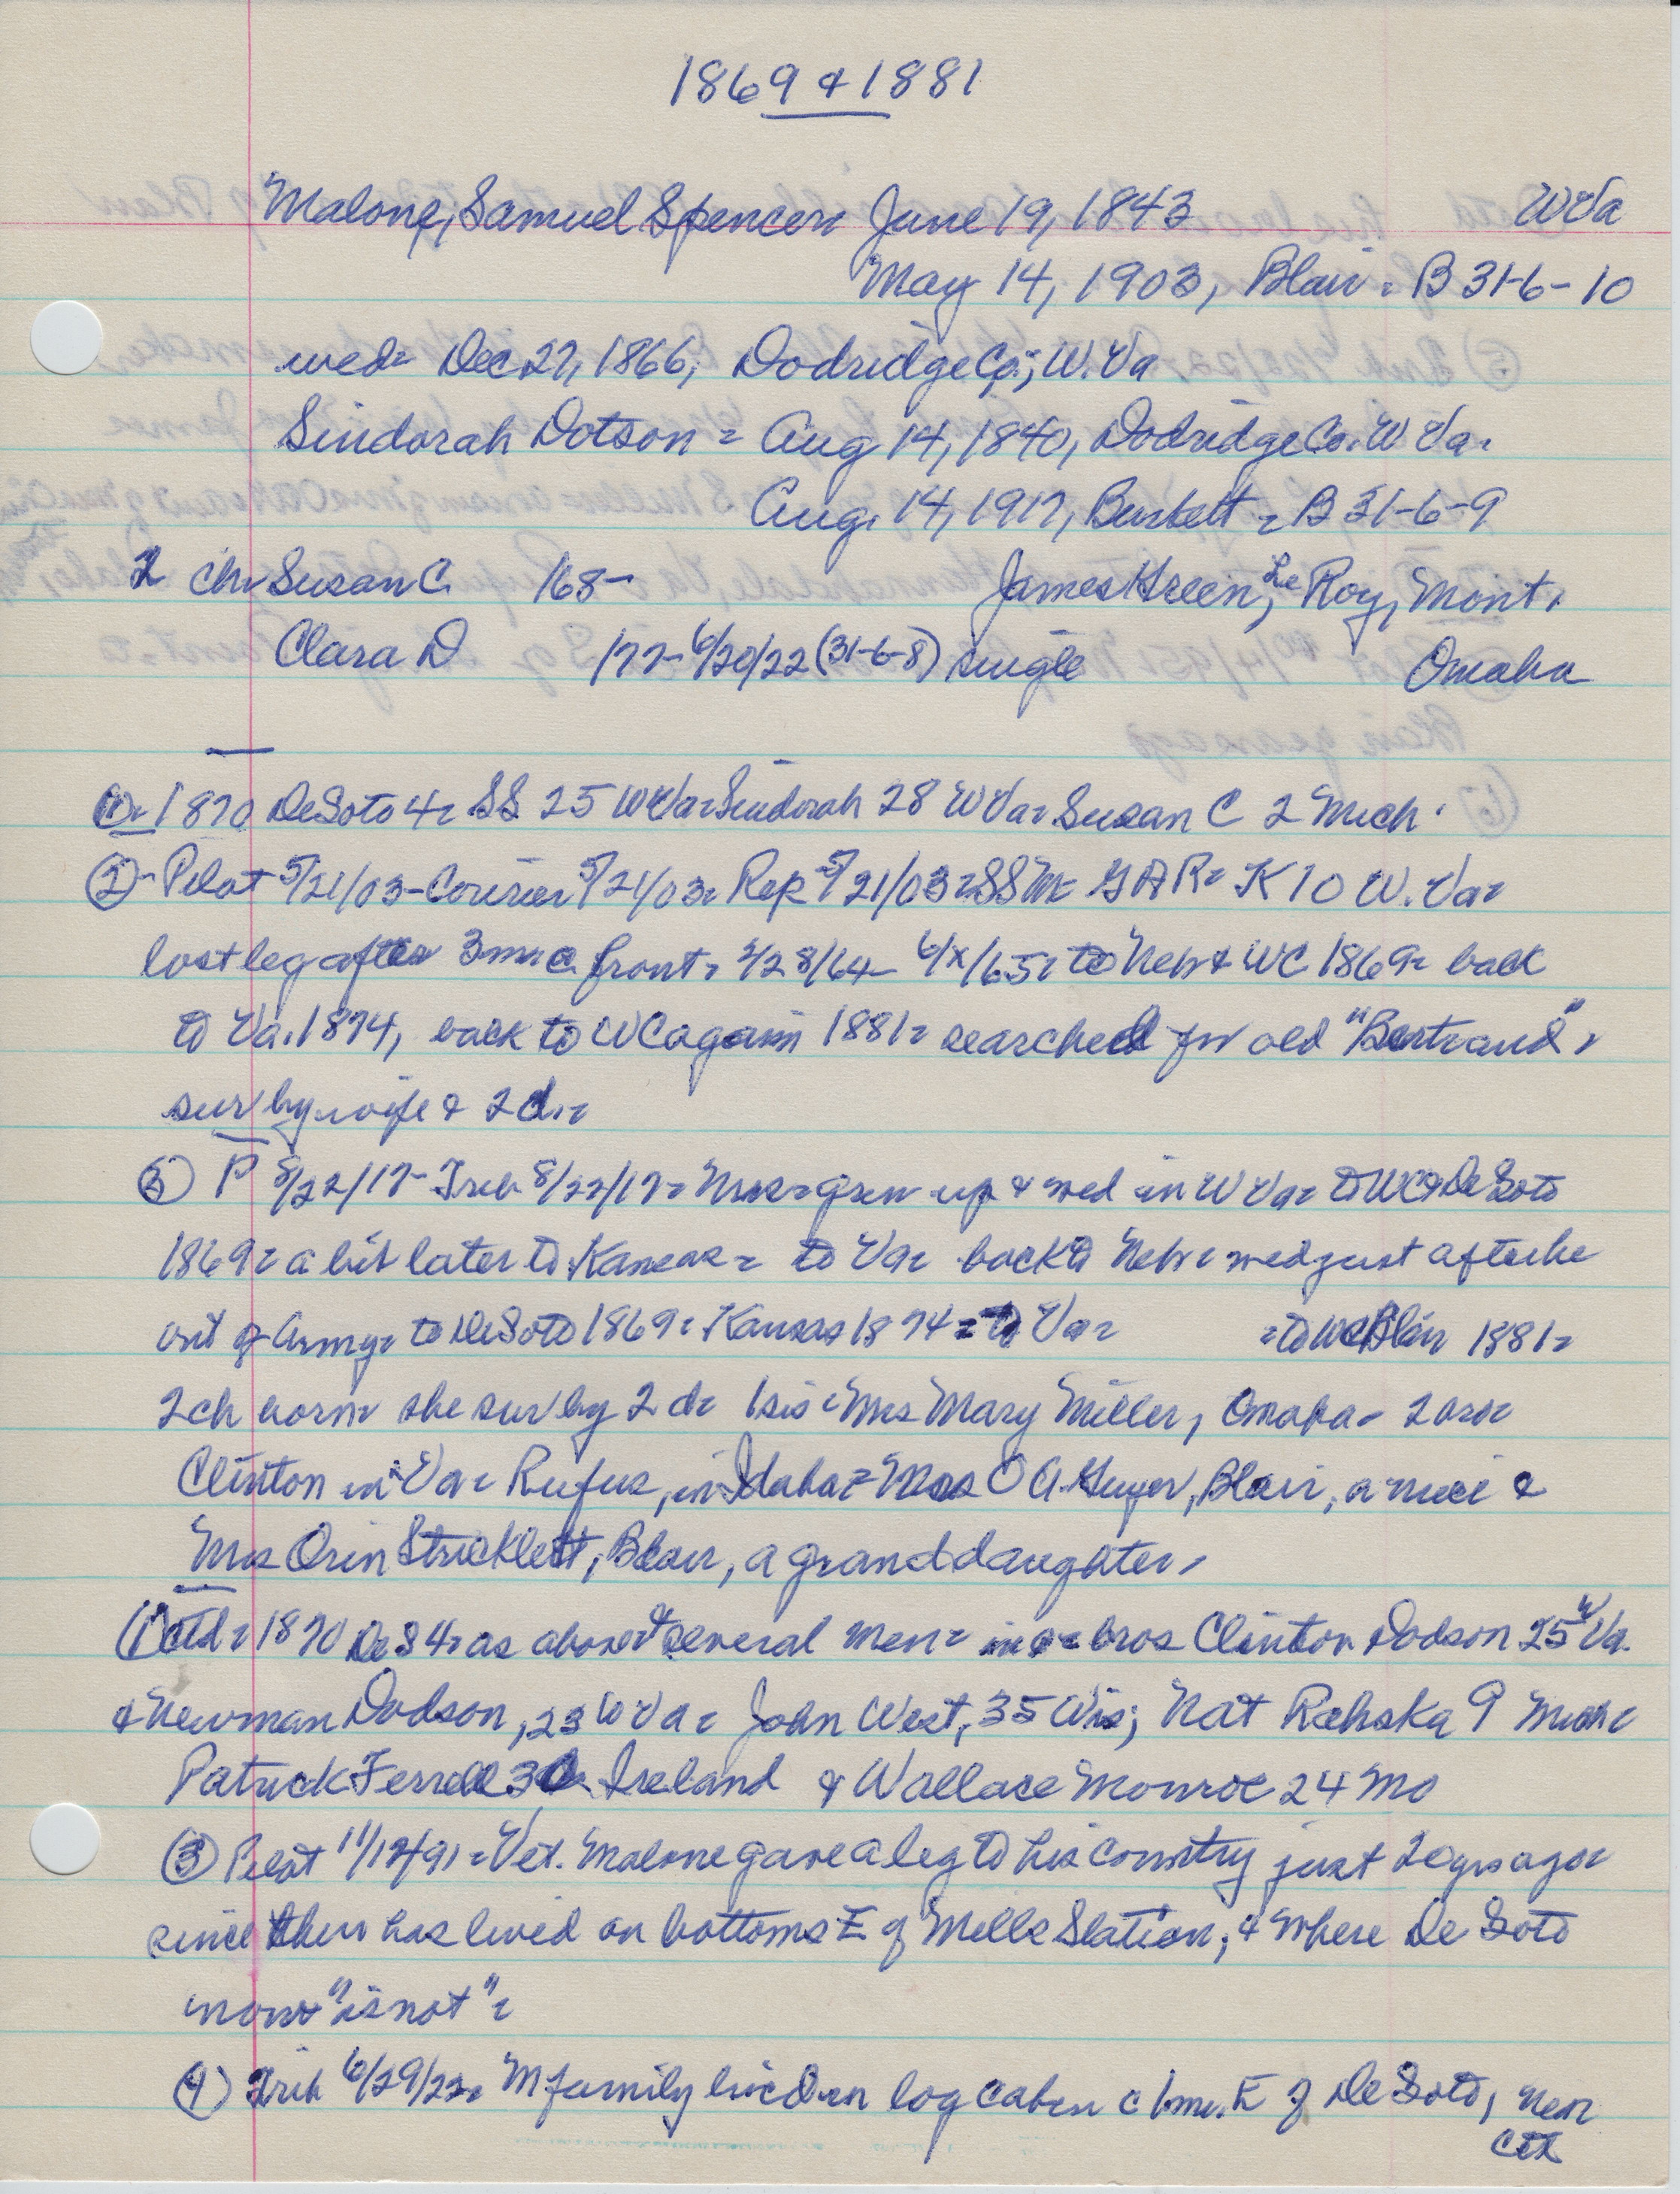 1869 & 1881
Malone, Samuel Spencer June 19, 1843 W Va
May 14, 1903, Blair = B 31-6-10
wed = Dec 27, 1866, Dodridge Co; W. Va
Sindorah Dotson = Aug 14, 1840, Dodridge Co. W Va =
Aug. 14, 1917, Burkett = B 31-6-9
2 ch = Susan C. '68- James Green, Le Roy, Mont.
Clara D '77- 6/20/22 (31-6-8) single Omaha
① = 1870 DeSoto 4 = SS 25 W Va = Sindorah 28 W Va = Susan C 2 Mich .
② - Pilot 5/21/03 - Courier 5/21/03 = Rep 5/21/03 = SS M = GAR = K 10 W. Va =
lost leg after 3 m @ front = 2/28/64 - 6/x/65 = to Neb & WC 1869 = back
to Va. 1874, back to WC again 1881 = searched for old "Bertrand" =
sur by wife & 2 d. =
⑤ P 8/22/17 - Trib 8/22/17 = Mrs = grew up & wed in W Va = to WC & DeSoto
1869 = a bit later to Kansas = to Va = back to Neb = wed just after he
out of Army = to DeSoto 1869 = Kansas 1874 = to Va = = to WC Blair 1881 =
2 ch born = she sur by 2 d = 1 sis = Mrs Mary Miller, Omaha = 2 bro =
Clinton in Va = Rufus, in Idaho = Mrs O A Guyer, Blair, a niece &
Mrs Orin Stricklett, Blair, a granddaughter =
① ctd = 1870 De S 4 = as above & several men = bros Clinton Dodson 25 W Va.
& Newman Dodson, 23 W Va = John West, 35 Wis; Nat Rehska 9 Mich =
Patrick Ferrell 30 Ireland & Wallace Monroe 24 Mo
③ Pilot 11/12/91 = Vet. Malone gave a leg to his country just 20 yrs ago =
since then has lived on bottoms E of Mills Station, & where De Soto
now "is not" =
④ Trib 6/29/22 = M family lived in log cabin c 1 mi. E of De Soto, near
ctd